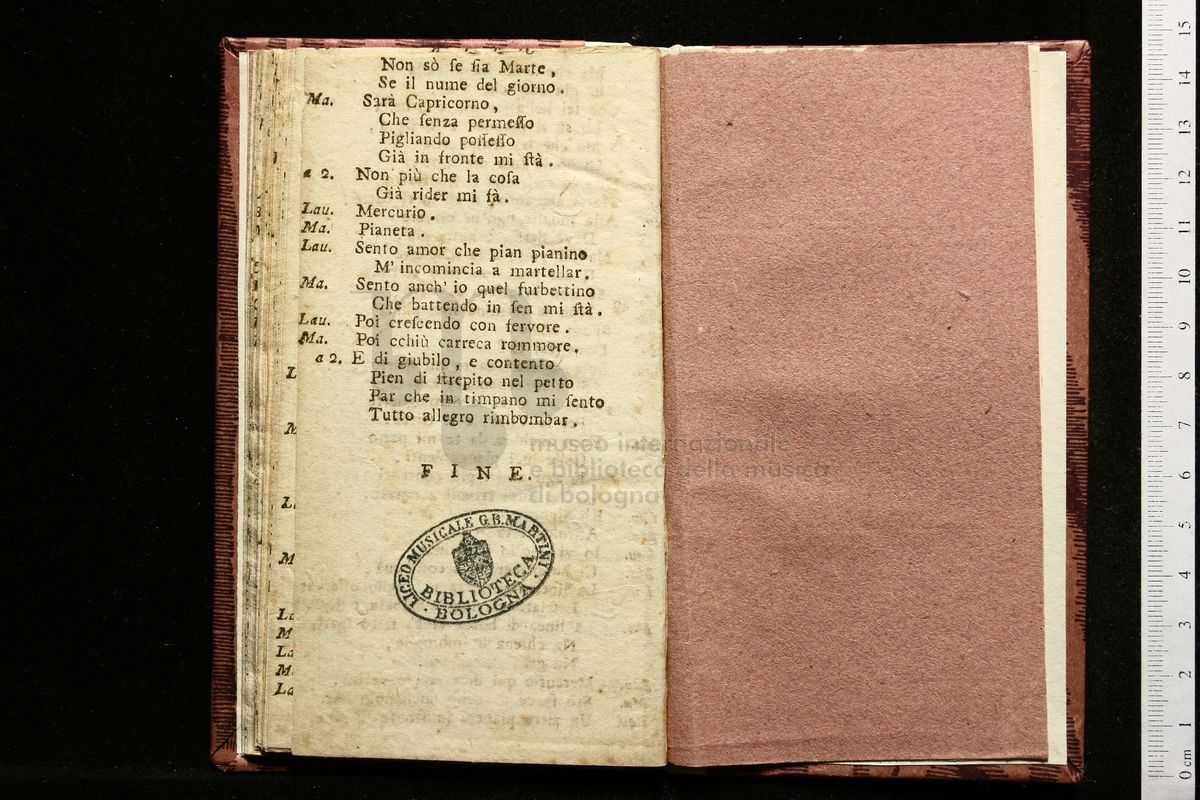 Non sò ſe ſia Marte,
Se il nume del giorno.
Ma. Sarà Capricorno,
Che ſenza permeſſo
Pigliando poſſeſſo
Già in fronte mi ſtà.
a 2. Non più che la coſa
Già rider mi fà.
Lau. Mercurio.
Ma. Pianeta.
Lau. Sento amor che pian pianino
M' incomincia a martellar.
Ma. Sento anch' io quel furbettino
Che battendo in ſen mi ſtà.
Lau. Poi creſcendo con fervore.
Ma. Poi cchiù carreca rommore.
a 2. E di giubilo, e contento
Pien di ſtrepito nel petto
Par che in timpano mi ſento
Tutto allegro rimbombar.
FINE.
LICEO MUSICALE G.B. MARTINI
BIBLIOTECA
· BOLOGNA ·
museo internazionale
e biblioteca della musica
di bologna
L
M
L
M
La
M
La
M
La
15
14
13
12
11
10
9
8
7
6
5
4
3
2
1
0 cm